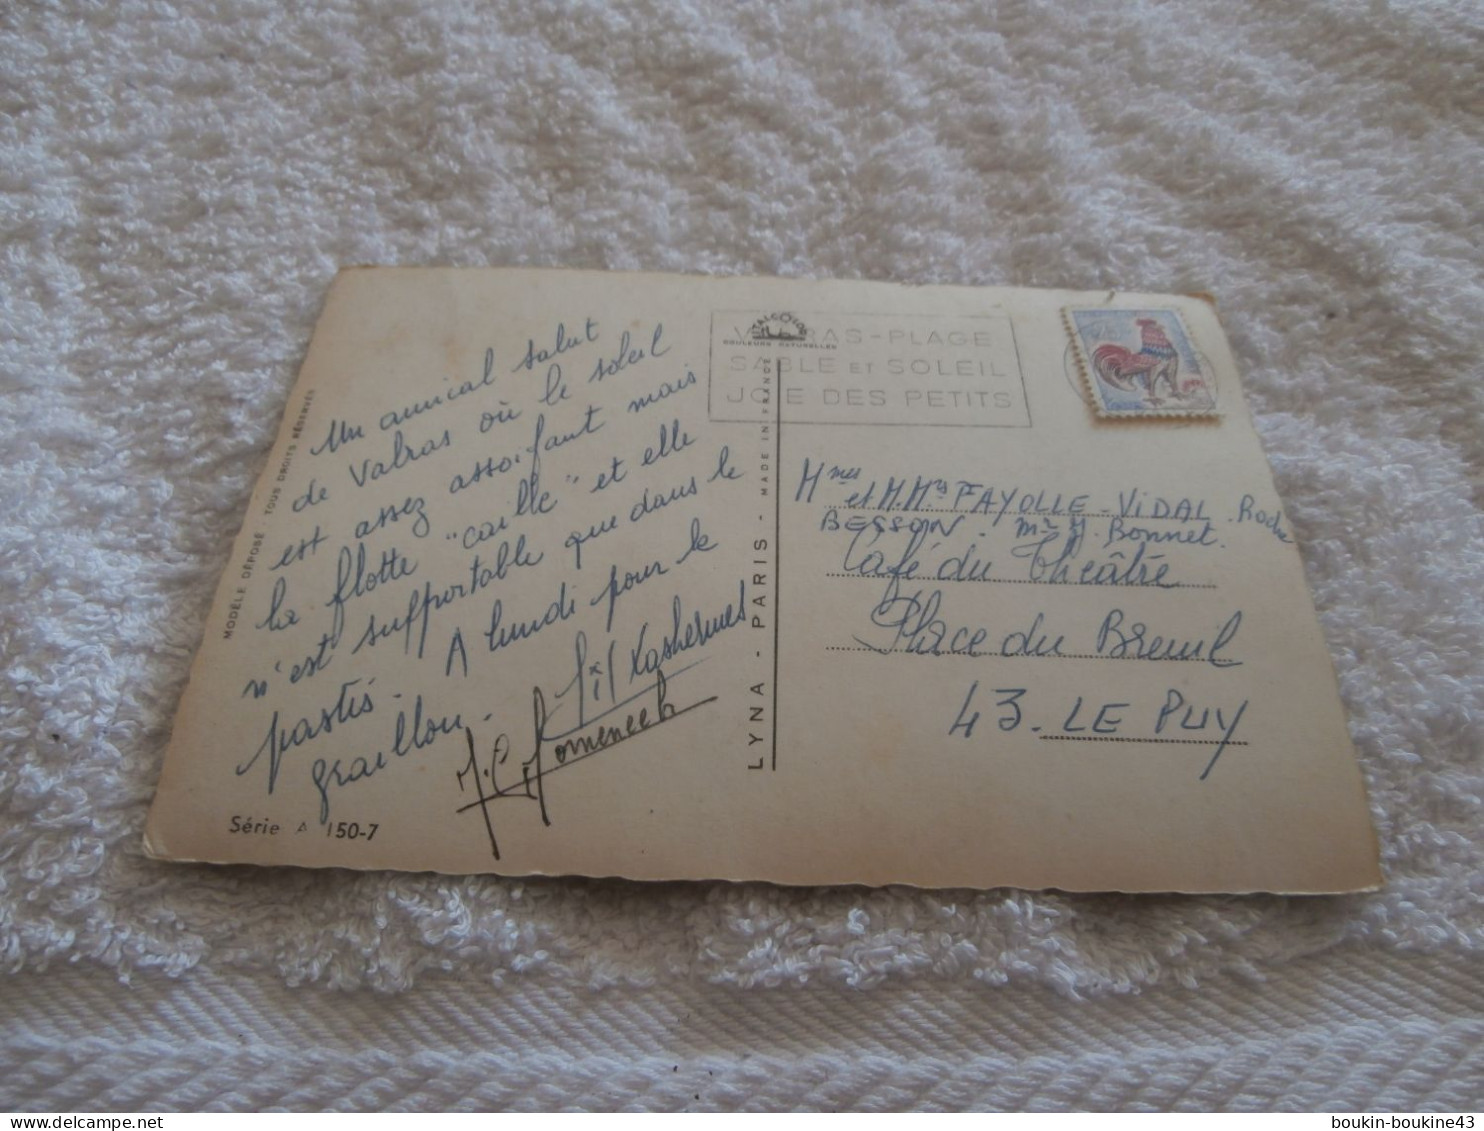 Un amical salut
de Valras où le soleil
est assez assoifant mais
la flotte "caille" et elle
n'est supportable que dans le
pastis. A lundi pour le
graillou.
J.C. Domenech
Série A 150-7
MODÈLE DÉPOSÉ - TOUS DROITS RÉSERVÉS
LYNA - PARIS - MADE IN FRANCE
COULEURS NATURELLES
VALRAS-PLAGE
SABLE ET SOLEIL
JOIE DES PETITS
Mmes et M.Mrs FAYOLLE-VIDAL-Roche
BESSON. Mr J. Bonnet.
Café du théâtre
Place du Breuil
43. LE PUY
boukin-boukine43